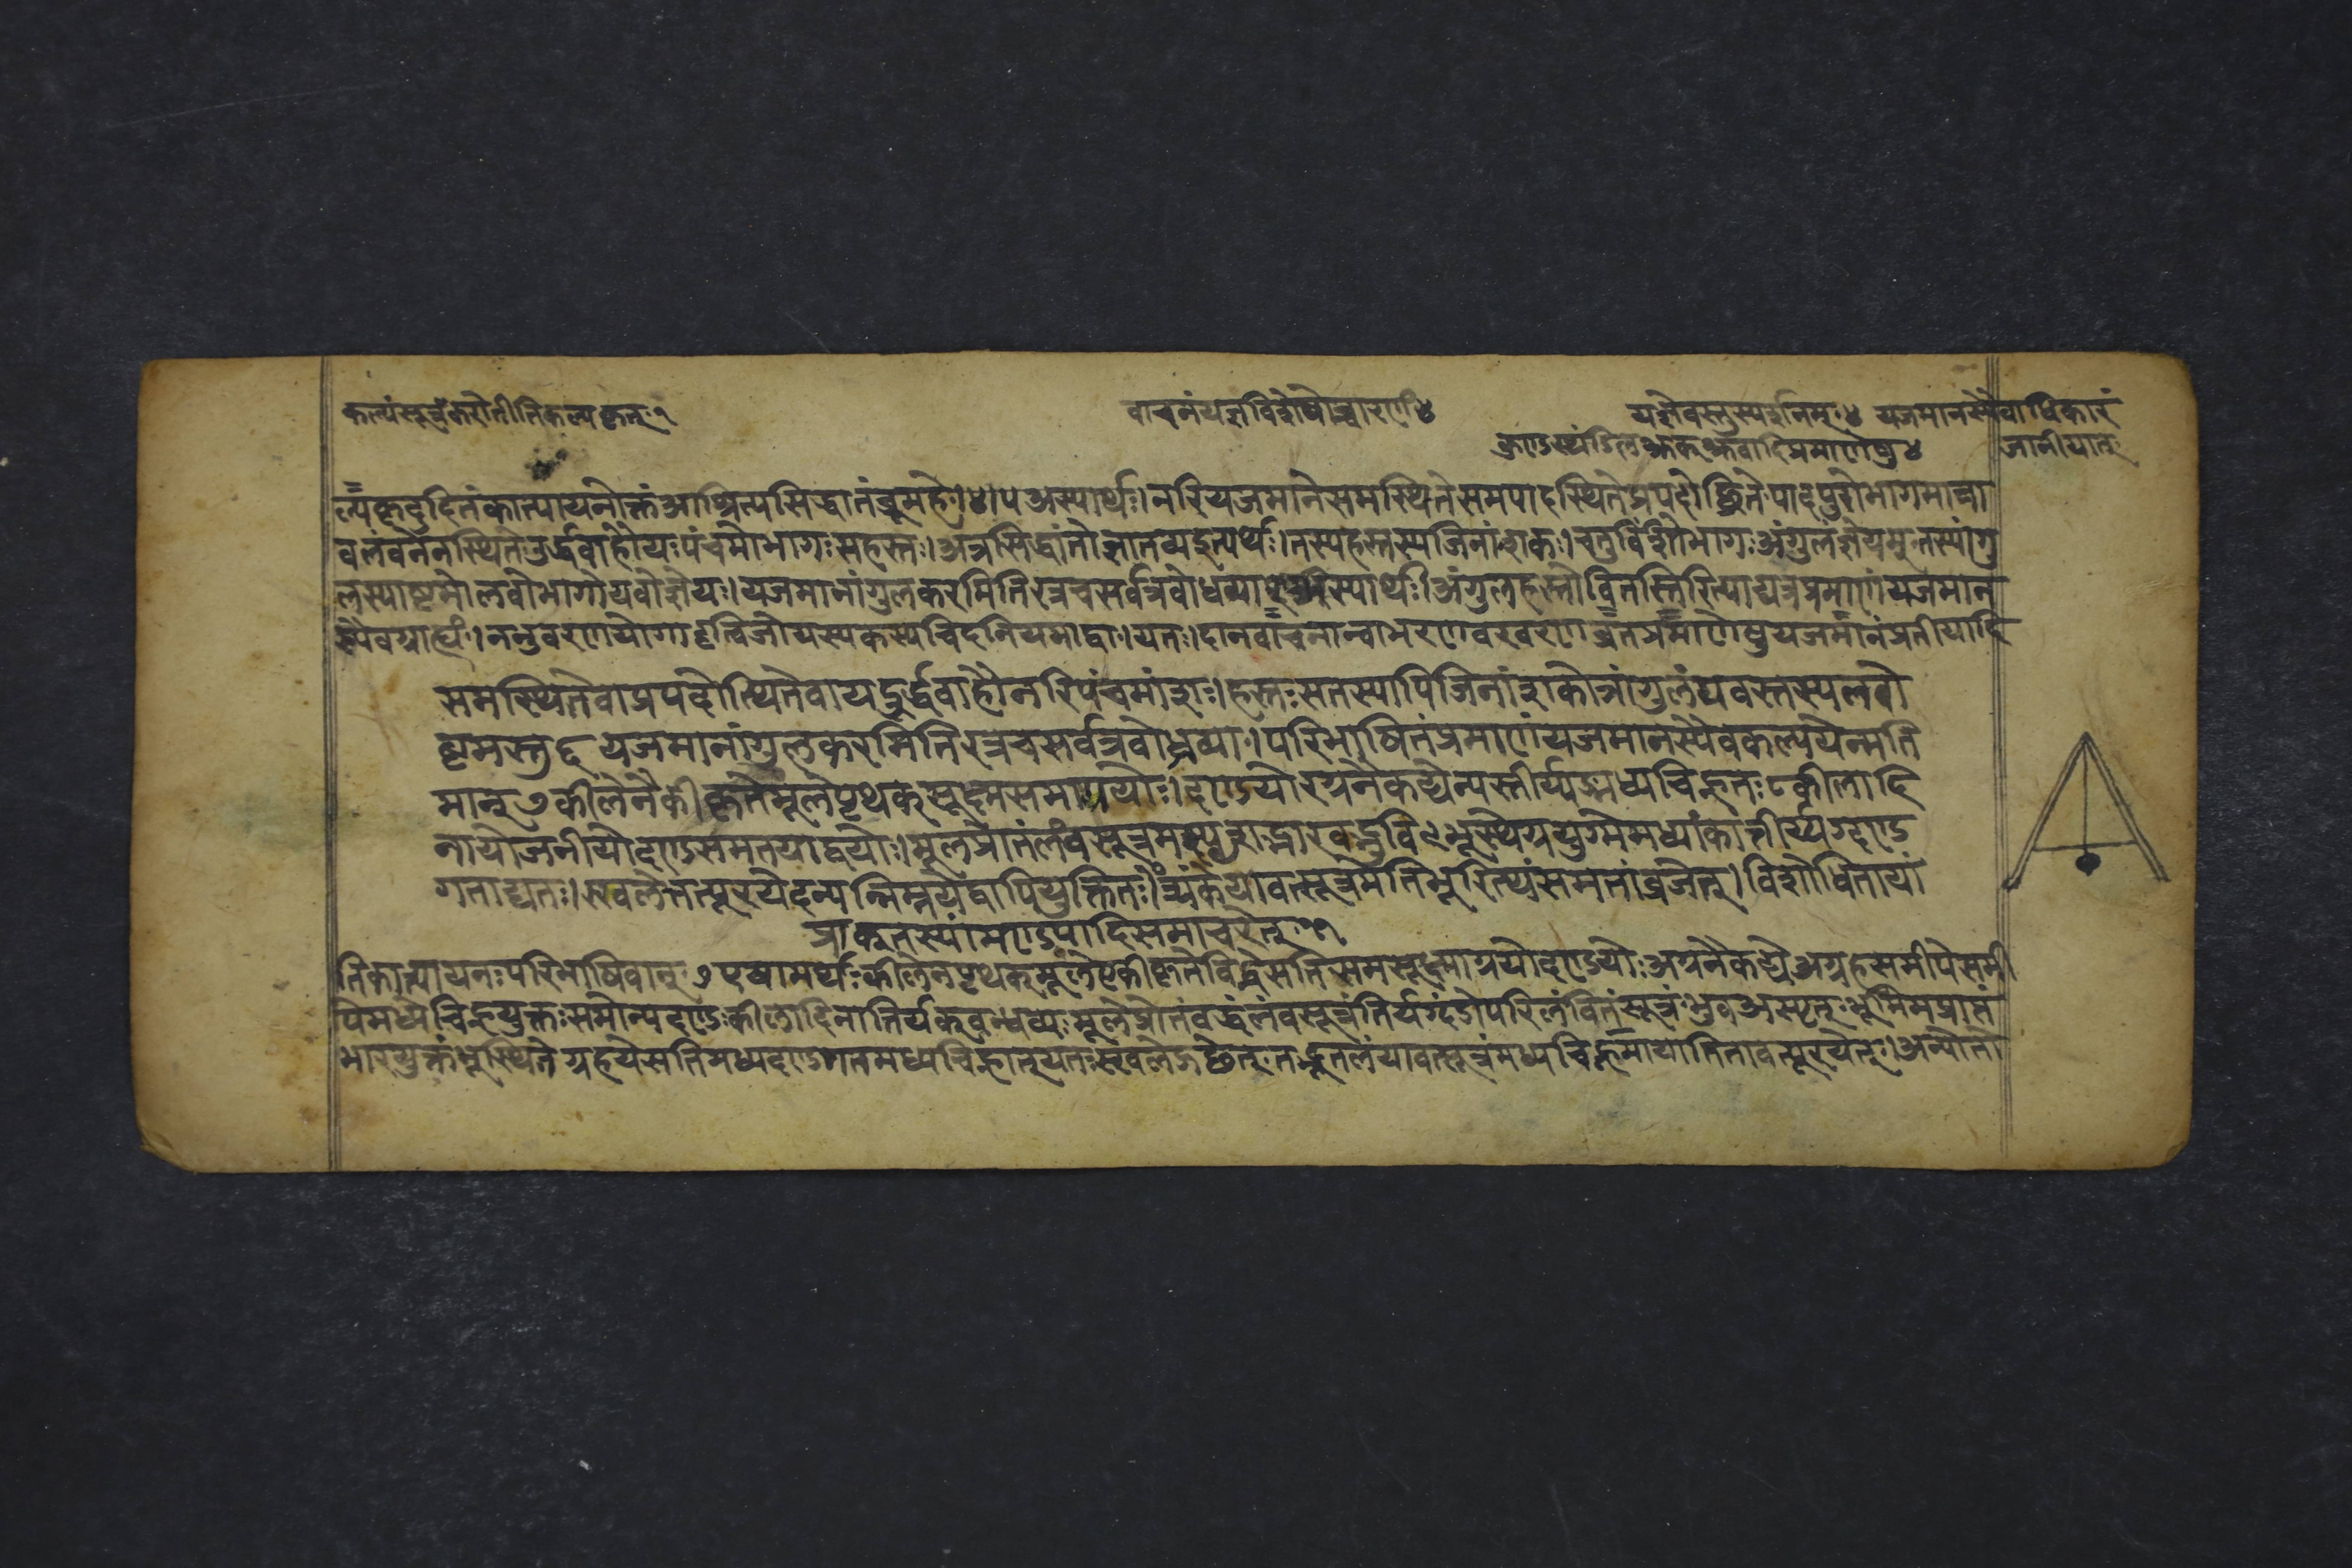 कल्पंसूत्रंकरोतीतिकल्पकृत्ः१
वाचनंयज्ञविशेषोच्चारणं४
यज्ञेवस्तुस्पर्शनम्ः४ यजमानस्यैवाधिकारं
कुण्डस्थंडिलस्रुक्स्रुवादिप्रमाणेषु४ जानीयात्ः
ल्पकृदुदितंकात्यायनोक्तंआश्रित्यसिद्धातंब्रूमहे।४।५अस्यार्थः।नरियजमानेसमस्थितेसमपादस्थितेप्रपदोच्छ्रितेपादपुरोभागमात्रा
वलंवनेनस्थितेउर्द्धवाहौयःपंचमोभागःसहस्तः।अत्रसिद्धांतोज्ञातव्यइत्यर्थः।तस्यहस्तस्यजिनांशकः।चतुर्विंशोभागःअंगुलंज्ञेयमुतस्यांगु
लस्याष्टमोलवोभागोयवोज्ञेयः।यजमानांगुलकरमितिरत्रचसर्वत्रवोधव्या अस्यार्थः।अंगुलहस्तोवितस्तिरित्याद्यत्रप्रमाणंयजमान
स्यैवग्राह्यं।ननुवरणयोगादृत्विजोयस्यकस्यचिदनियमाद्वा।यतः।दानवाचनान्वाभरणवरवरणव्रतप्रमाणेषुयजमानंप्रतीयादि
समस्थितेवाप्रपदोत्थितेवायदुर्द्धवाहौनरिपंचमांशः।हस्तःसतस्यापिजिनांशकोत्रांगुलंयवस्तस्यलवो
ष्टमस्तु६ यजमानांगुलकरमितिरत्रचसर्वत्रवोद्धव्या।परिभाषितंप्रमाणंयजमानस्यैवकल्पयेन्मति
मान्७कीलेनैकीकृतेमूलेपृथक्सूक्ष्मसमाग्रयोः।दण्डयोरग्रनैकट्येन्यस्तीर्य्यङ्मध्यचिह्नतः८कीलादि
नायोजनीयोदण्डसमतयाद्वयोः।मूलप्रोतंलंवसूत्रमस्पृशद्भारवद्भुवि९भूस्थेग्रयुग्मेमध्यांकात्तीर्य्यग्दण्ड
गताद्यतः।स्खलेत्तत्पूरयेदन्यन्निम्नयेद्वापियुक्तितः।त्र्यंकंयावत्सूत्रमेतिभूरित्थंसमतांव्रजेत्।विशोधितायां
प्राक्तस्यांमण्डपादिसमाचरेत्ः११
तिकात्यायनःपरिभाषिवान्ः७एषामर्थःकीलेनपृथक्मूलेएकीकृतेविद्धेसतिसमसूक्ष्माग्रयोदण्डयोःअग्रनैकट्येअग्रहसमीपेसमी
पेमध्येचिह्नयुक्तःसमोन्यदण्डःकीलादिनातिर्यक्वन्धव्यःमूलेप्रोतंवद्धंलंवसूत्रंतिर्यग्दंडोपरिलंवितंसूत्रंभुवंअस्पृत्ःभूमिमप्राप्तं
भारयुक्तंभूस्थितेग्रहयेसतिमध्यदण्डगतमध्यचिह्नात्यतःस्खलेद्गछेत्ःतद्भूतलंयावत्सूत्रंमध्यचिह्नमायातितावत्पूरयेत्ः।अन्योतो